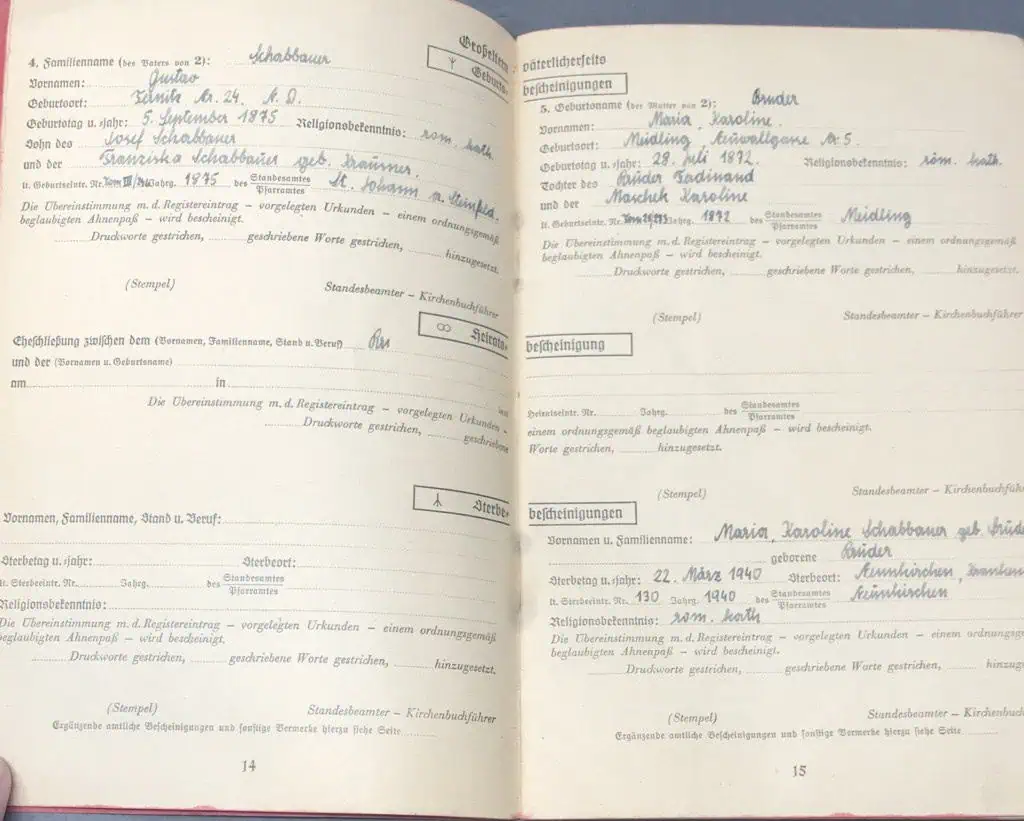 Großeltern
4. Familienname (des Vaters von 2): Schabbauer
Geburts-
Vornamen: Gustav
Geburtsort: Ternitz Nr. 24. N. D.
Geburtstag u. -jahr: 5. September 1875 Religionsbekenntnis: röm. kath.
Sohn des Josef Schabbauer
und der Franziska Schabbauer geb.
lt. Geburtseintr. Nr. Jahrg. 1875 des Standesamtes Pfarramtes St. Johann a. Steinfeld.
Die Übereinstimmung m. d. Registereintrag – vorgelegten Urkunden – einem ordnungsgemäß
beglaubigten Ahnenpaß – wird bescheinigt.
Druckworte gestrichen, geschriebene Worte gestrichen, hinzugesetzt.
(Stempel) Standesbeamter – Kirchenbuchführer
Heirats-
Eheschließung zwischen dem (Vornamen, Familienname, Stand u. Beruf)
und der (Vornamen u. Geburtsname)
am in
Die Übereinstimmung m. d. Registereintrag – vorgelegten Urkunden –
Druckworte gestrichen, geschriebene
Sterbe-
Vornamen, Familienname, Stand u. Beruf:
Sterbetag u. -jahr: Sterbeort:
lt. Sterbeeintr. Nr. Jahrg. des Standesamtes Pfarramtes
Religionsbekenntnis:
Die Übereinstimmung m. d. Registereintrag – vorgelegten Urkunden – einem ordnungsgemäß
beglaubigten Ahnenpaß – wird bescheinigt.
Druckworte gestrichen, geschriebene Worte gestrichen, hinzugesetzt.
(Stempel) Standesbeamter – Kirchenbuchführer
Ergänzende amtliche Bescheinigungen und sonstige Vermerke hierzu siehe Seite
14
väterlicherseits
bescheinigungen
5. Geburtsname (der Mutter von 2): Bruder
Vornamen: Maria, Karoline.
Geburtsort: Meidling, Nr. 5.
Geburtstag u. -jahr: 28. Juli 1872. Religionsbekenntnis: röm. kath.
Tochter des Bruder Ferdinand
und der Maschek Karoline
lt. Geburtseintr. Nr. Jahrg. 1872 des Standesamtes Pfarramtes Meidling
Die Übereinstimmung m. d. Registereintrag – vorgelegten Urkunden – einem ordnungsgemäß
beglaubigten Ahnenpaß – wird bescheinigt.
Druckworte gestrichen, geschriebene Worte gestrichen, hinzugesetzt.
(Stempel) Standesbeamter – Kirchenbuchführer
bescheinigung
Heiratseintr. Nr. Jahrg. des Standesamtes Pfarramtes
einem ordnungsgemäß beglaubigten Ahnenpaß – wird bescheinigt.
Worte gestrichen, hinzugesetzt.
(Stempel) Standesbeamter – Kirchenbuchfüh
bescheinigungen
Vornamen u. Familienname: Maria, Karoline Schabbauer geb.
geborene Bruder
Sterbetag u. -jahr: 22. März 1940 Sterbeort: Neunkirchen,
lt. Sterbeeintr. Nr. 130 Jahrg. 1940 des Standesamtes Pfarramtes Neunkirchen
Religionsbekenntnis: röm. kath
Die Übereinstimmung m. d. Registereintrag – vorgelegten Urkunden – einem
beglaubigten Ahnenpaß – wird bescheinigt.
Druckworte gestrichen, geschriebene Worte gestrichen, hinzu
(Stempel) Standesbeamter – Kirchenbuch
Ergänzende amtliche Bescheinigungen und sonstige Vermerke hierzu siehe Seite
15